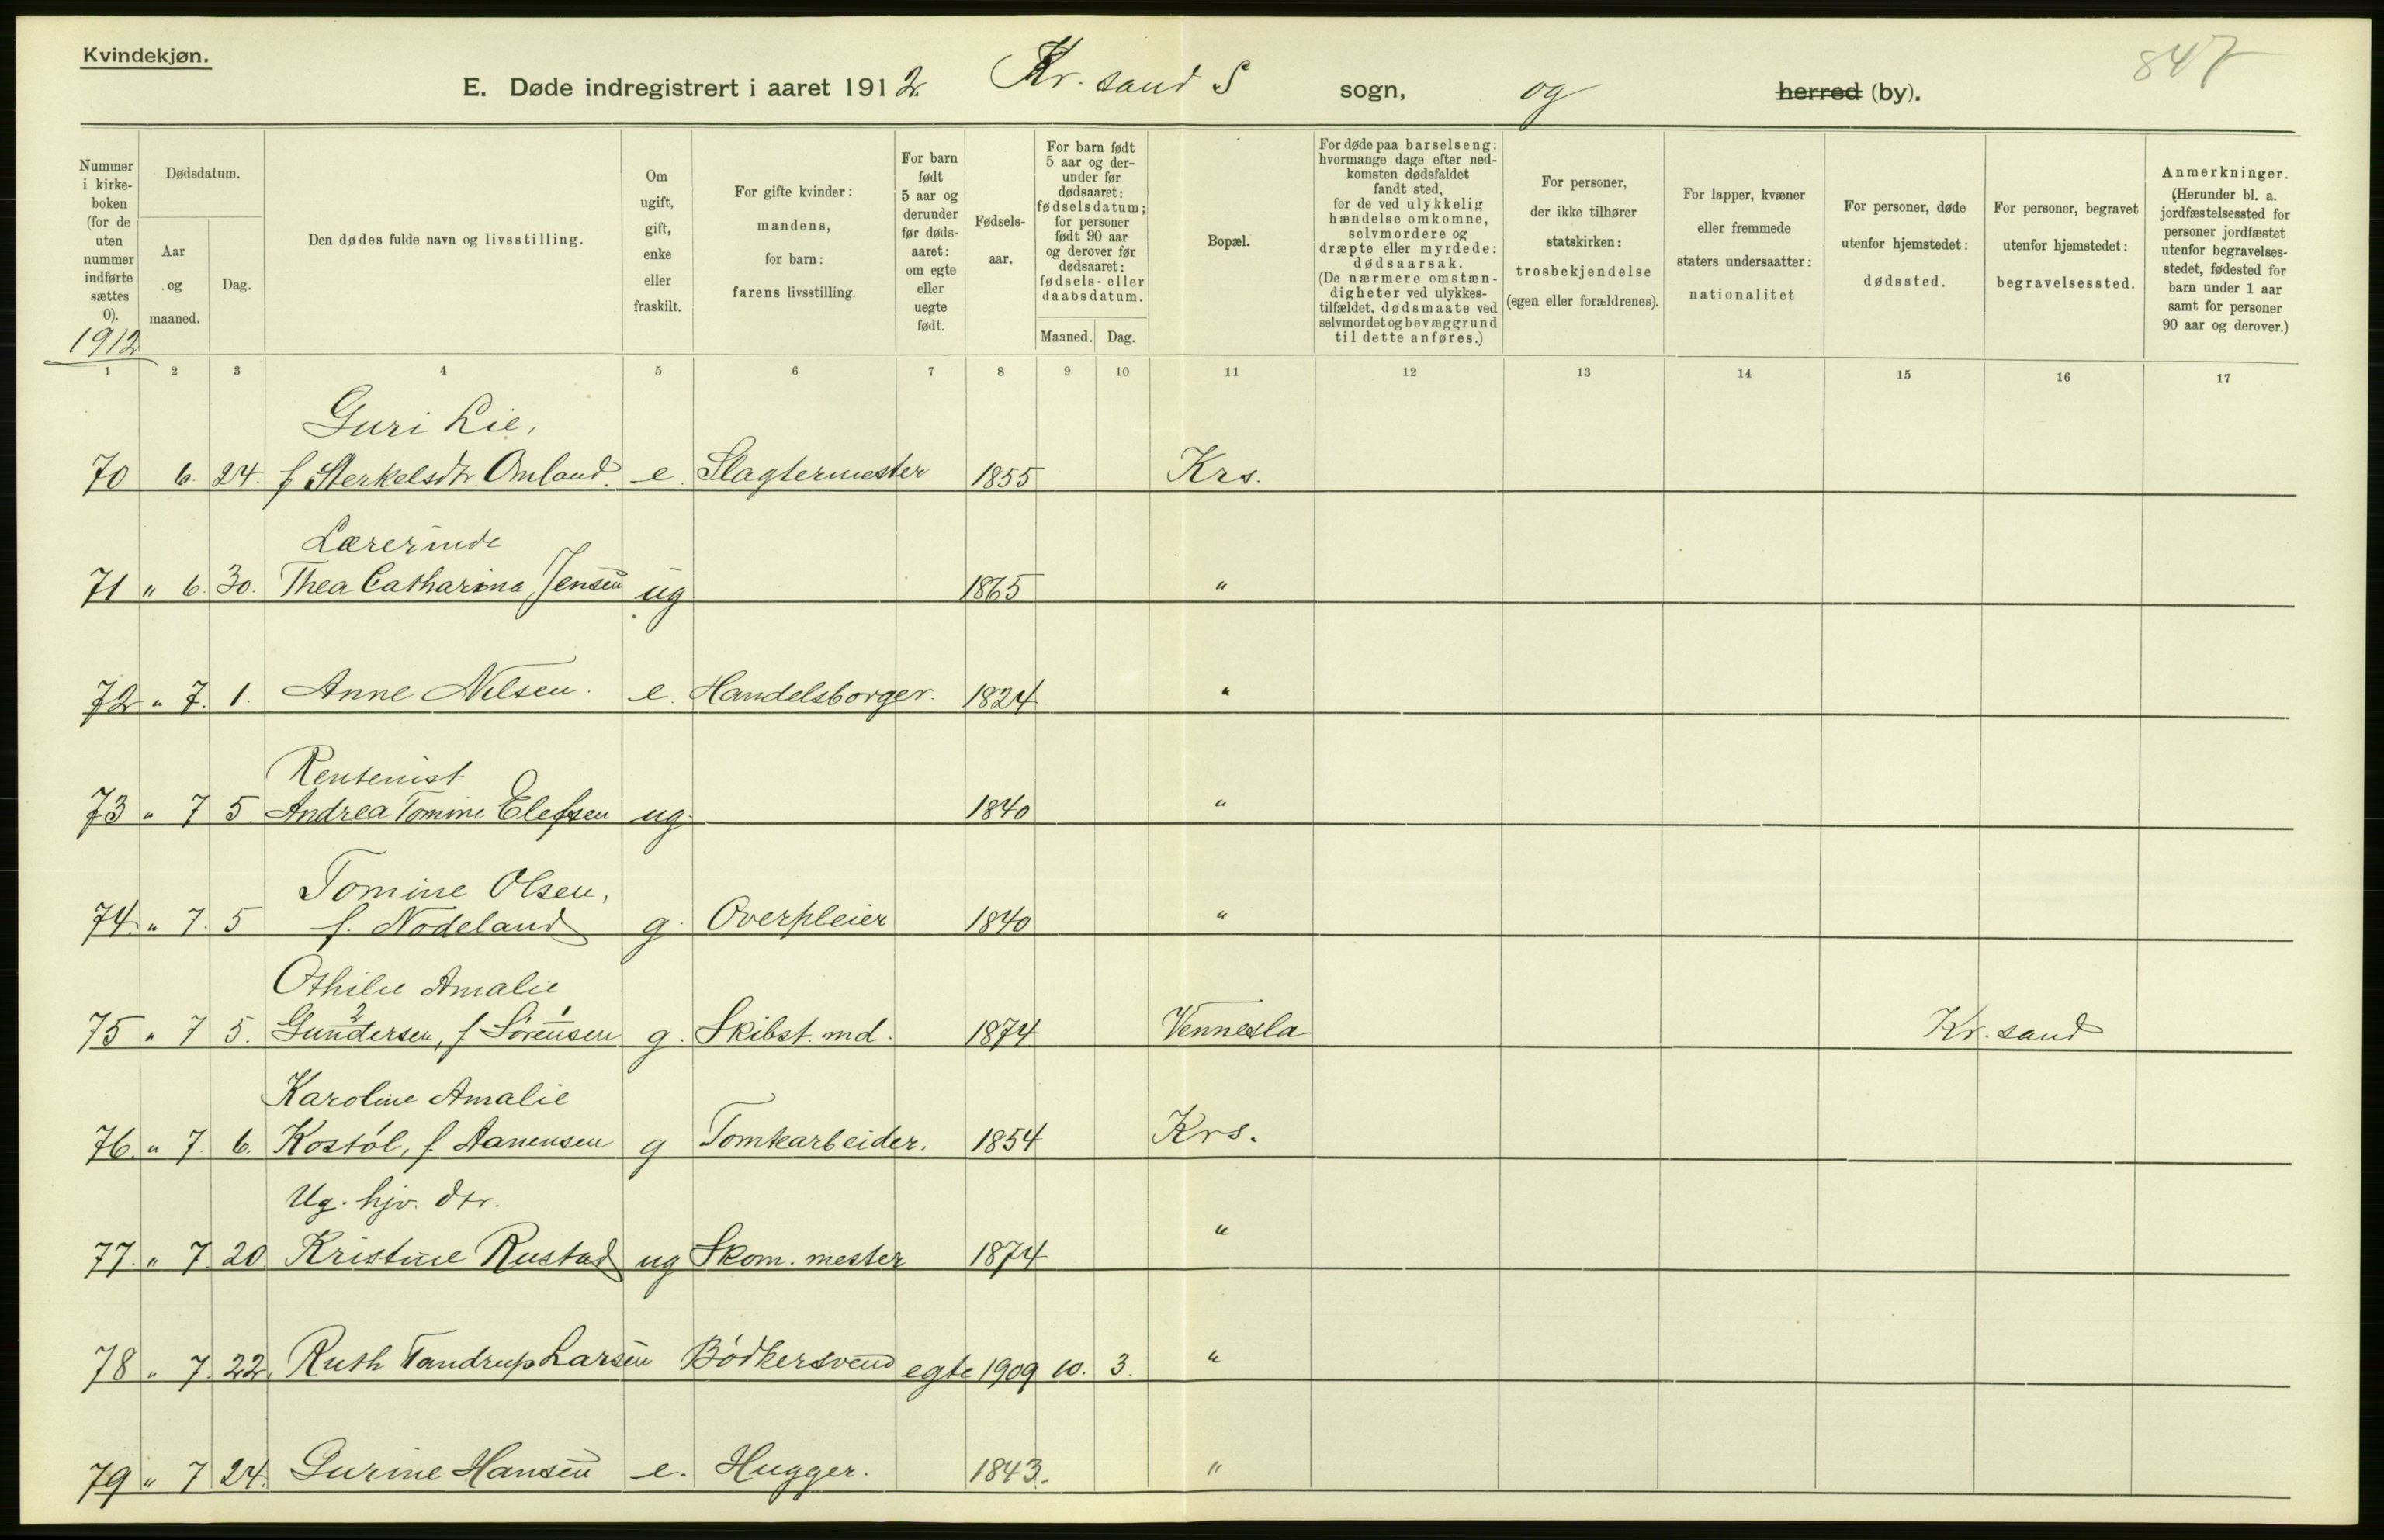 Kvindekjøn.
847
E. Døde indregistrert i aaret 1912 Kr. sand S sogn, og herred (by).
Nummer i kirkeboken (for de uten nummer indførte sættes 0).
1912
Dødsdatum.
Aar og maaned.
Dag.
Den dødes fulde navn og livsstilling.
Om ugift, gift, enke eller fraskilt.
For gifte kvinder: mandens, for barn: farens livsstilling.
For barn født 5 aar og derunder før dødsaaret: om egte eller uegte født.
Fødselsaar.
For barn født 5 aar og derunder før dødsaaret: fødselsdatum; for personer født 90 aar og derover før dødsaaret: fødsels- eller daabsdatum.
Maaned. Dag.
Bopæl.
For døde paa barselseng: hvormange dage efter nedkomsten dødsfaldet fandt sted, for de ved ulykkelig hændelse omkomne, selvmordere og dræpte eller myrdede: dødsaarsak. (De nærmere omstændigheter ved ulykkestilfældet, dødsmaate ved selvmordet og bevæggrund til dette anføres.)
For personer, der ikke tilhører statskirken: trosbekjendelse (egen eller forældrenes).
For lapper, kvæner eller fremmede staters undersaatter: nationalitet
For personer, døde utenfor hjemstedet: dødssted.
For personer, begravet utenfor hjemstedet: begravelsessted.
Anmerkninger. (Herunder bl. a. jordfæstelsessted for personer jordfæstet utenfor begravelsesstedet, fødested for barn under 1 aar samt for personer 90 aar og derover.)
1 2 3 4 5 6 7 8 9 10 11 12 13 14 15 16 17
Guri Lie,
70 6. 24. f Sterkelsdtr Omland. e. Slagtermester 1855 Krs.
Lærerinde
71 " 6. 30. Thea Catharina Jensen ug 1865 "
72 " 7. 1. Anne Nilsen. e. Handelsborger. 1824 "
Rentenist
73 " 7 5. Andrea Tomine Elefsen ug. 1840 "
Tomine Olsen,
74. " 7. 5 f. Nodeland g. Overpleier 1840 "
Othilie Amalie
2 1
75 " 7 5. Gundersen, f Sørensen g. Skibst. md. 1874 Vennesla Kr. sand
Karoline Amalie
76. " 7. 6. Kostøl, f. Aanensen g Tomtearbeider. 1854 Krs.
Ug. hjv. dtr.
77. " 7. 20. Kristine Rustad ug Skom. mester 1874 "
78 " 7. 22. Ruth Tandrup Larsen Bødkersvend egte 1909 10. 3. "
79 " 7 24. Gurine Hansen e. Hugger. 1843. "